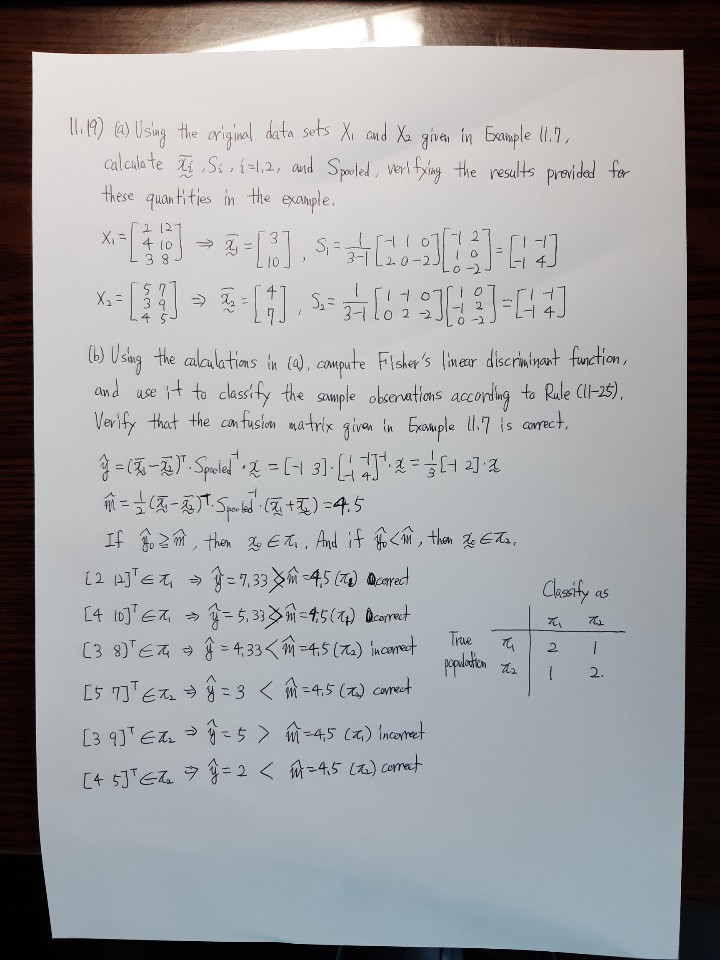 11.19) (a) Using the original data sets X₁ and X₂ given in Example 11.7,
calculate x̄i, Si, i=1,2, and Spooled, verifying the results provided for
these quantities in the example.
X₁ = [2 12; 4 10; 3 8] ⇒ x̄₁ = [3; 10], S₁ = 1/(3-1) [-1 1 0; 2 0 -2][-1 2; 1 0; 0 -2] = [1 -1; -1 4]
X₂ = [5 7; 3 9; 4 5] ⇒ x̄₂ = [4; 7], S₂ = 1/(3-1) [1 -1 0; 0 2 -2][1 0; -1 2; 0 -2] = [1 -1; -1 4]
(b) Using the calculations in (a), compute Fisher's linear discriminant function,
and use it to classify the sample observations according to Rule (11-25).
Verify that the confusion matrix given in Example 11.7 is correct.
ŷ = (x̄₁ - x̄₂)ᵀ · Spooled⁻¹ · x = [-1 3] · [1 -1; -1 4]⁻¹ · x = 1/3 [-1 2] · x
m̂ = 1/2 (x̄₁ - x̄₂)ᵀ · Spooled⁻¹ · (x̄₁ + x̄₂) = 4.5
If ŷ₀ ≥ m̂, then x₀ ∈ π₁. And if ŷ₀ < m̂, then x₀ ∈ π₂.
[2 12]ᵀ ∈ π₁ ⇒ ŷ = 7.33 > m̂ = 4.5 (π₁) correct
[4 10]ᵀ ∈ π₁ ⇒ ŷ = 5.33 > m̂ = 4.5 (π₁) correct
[3 8]ᵀ ∈ π₁ ⇒ ŷ = 4.33 < m̂ = 4.5 (π₂) incorrect
[5 7]ᵀ ∈ π₂ ⇒ ŷ = 3 < m̂ = 4.5 (π₂) correct
[3 9]ᵀ ∈ π₂ ⇒ ŷ = 5 > m̂ = 4.5 (π₁) incorrect
[4 5]ᵀ ∈ π₂ ⇒ ŷ = 2 < m̂ = 4.5 (π₂) correct
Classify as
π₁ π₂
True π₁ 2 1
population π₂ 1 2.